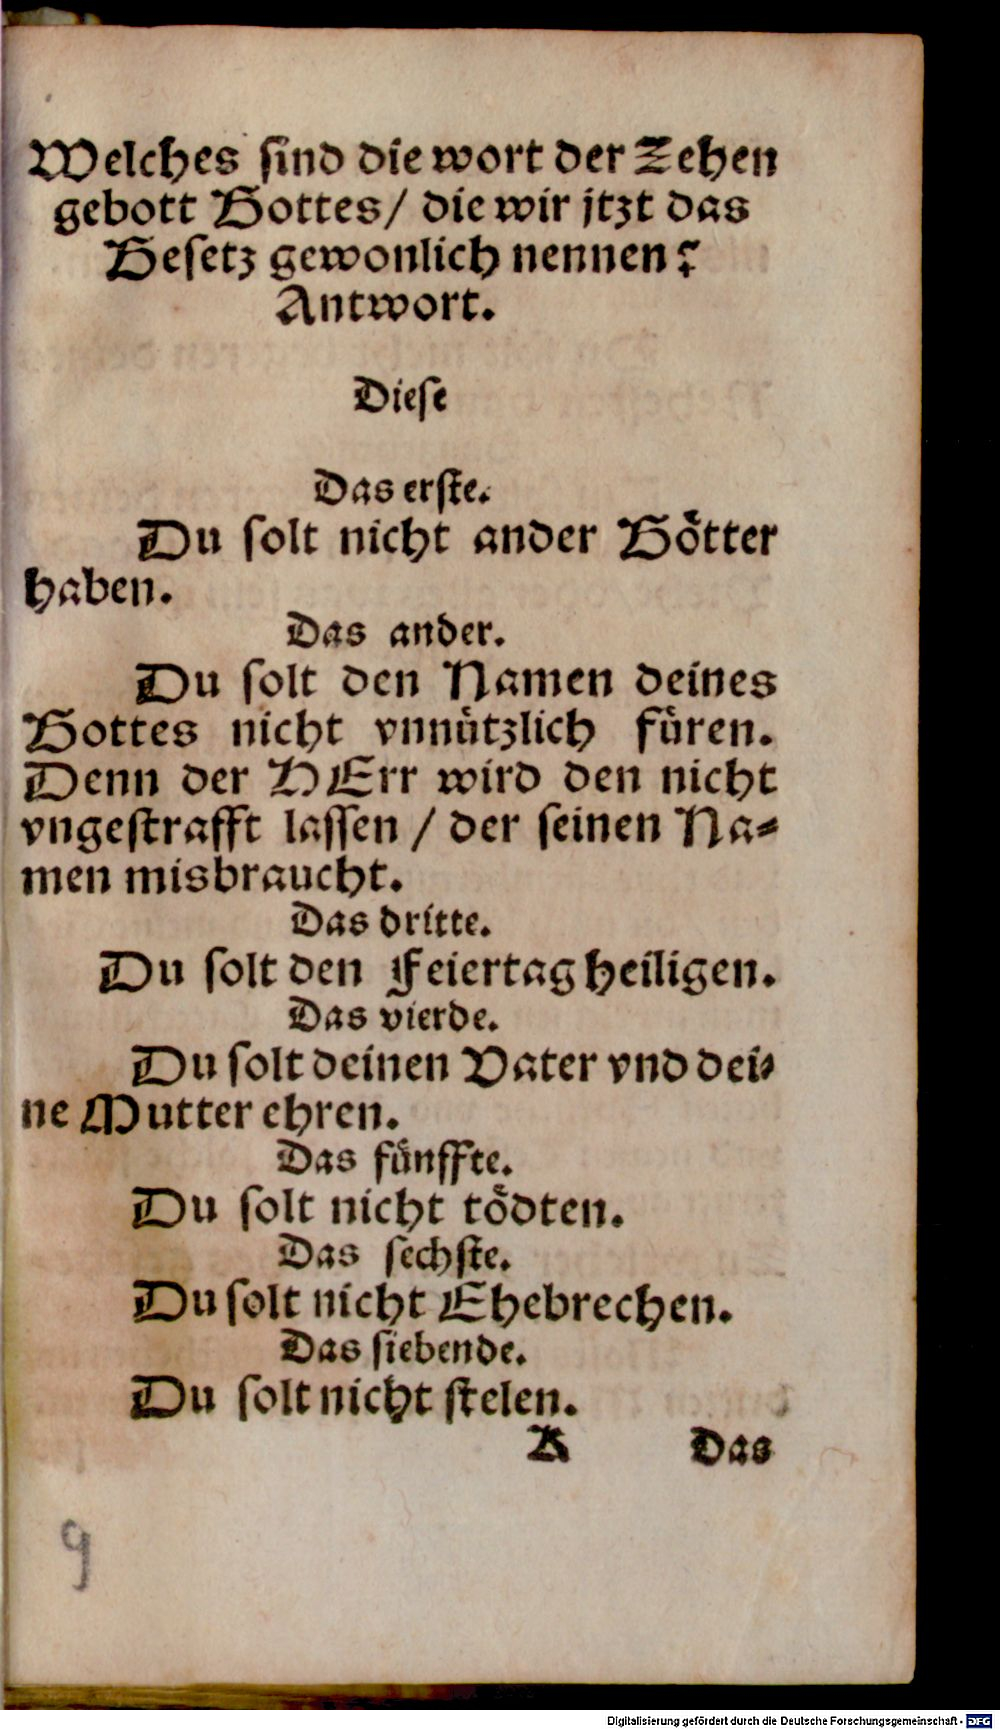 Welches sind die wort der Zehen
gebott Gottes/ die wir jtzt das
Gesetz gewonlich nennen?
Antwort.
Diese
Das erste.
Du solt nicht ander Götter
haben.
Das ander.
Du solt den Namen deines
Gottes nicht vnnützlich füren.
Denn der HErr wird den nicht
vngestrafft lassen / der seinen Na⸗
men misbraucht.
Das dritte.
Du solt den Feiertag heiligen.
Das vierde.
Du solt deinen Vater vnd dei⸗
ne Mutter ehren.
Das fünffte.
Du solt nicht tödten.
Das sechste.
Du solt nicht Ehebrechen.
Das siebende.
Du solt nicht stelen.
A Das
9
Digitalisierung gefördert durch die Deutsche Forschungsgemeinschaft - DFG